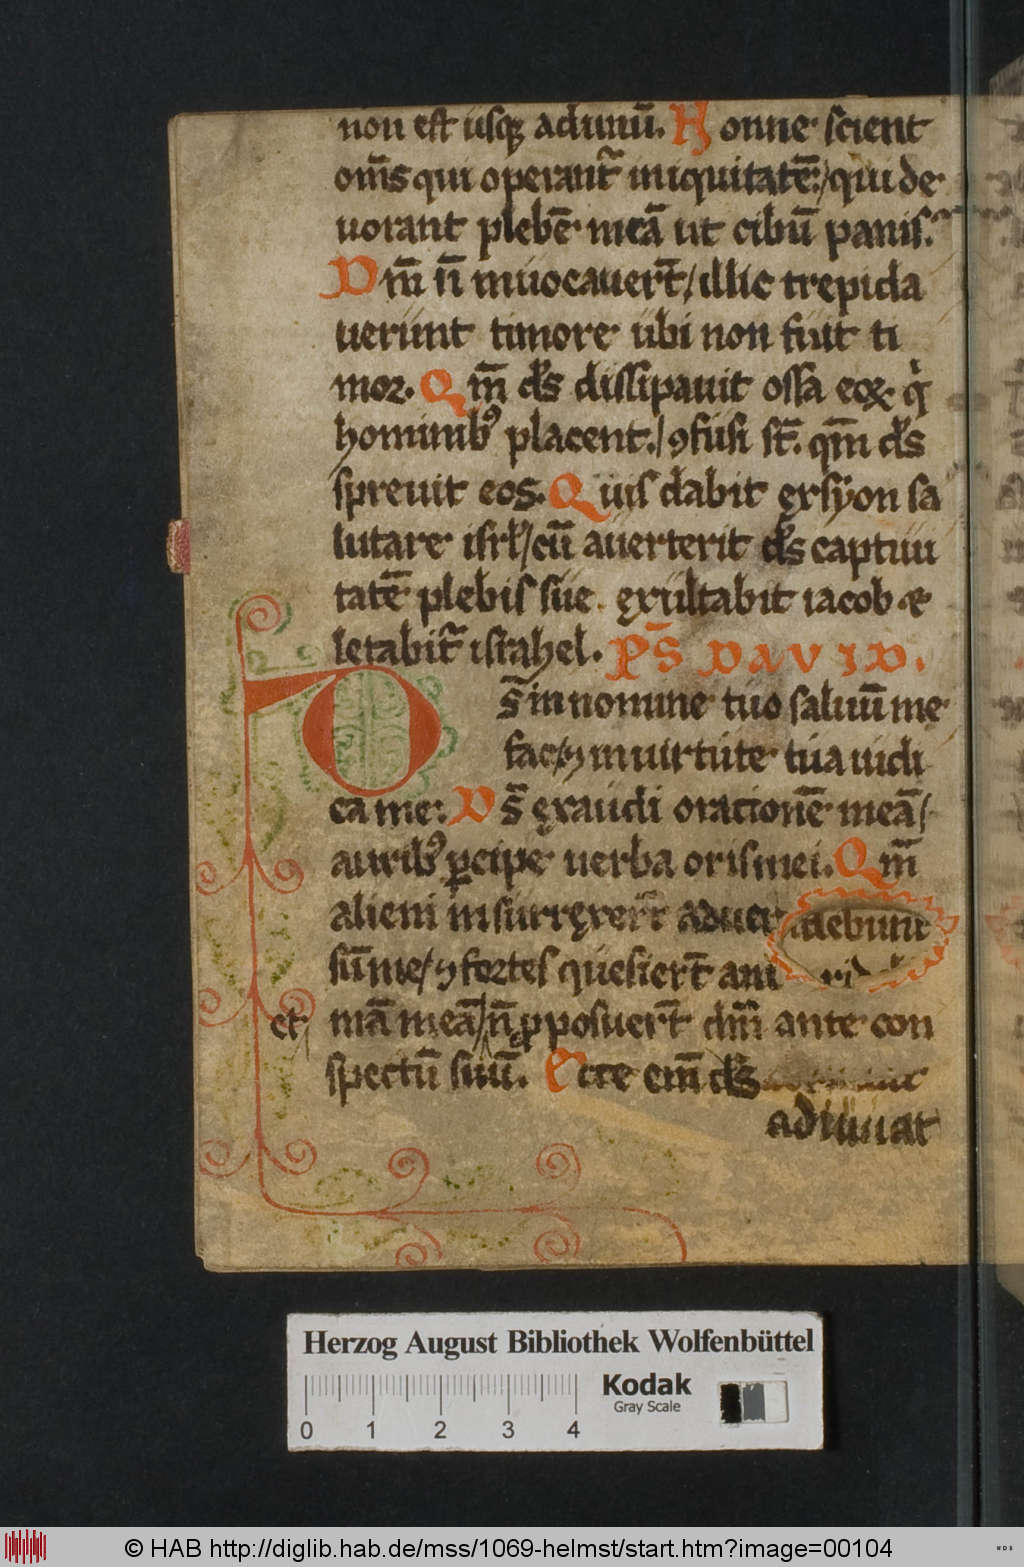 non est usq; ad unū. Nonne scient
om̄s qui operant᷑ iniquitatē / qui de
uorant plebē meā ut cibū panis.
Dm̄ n̄ inuocauer̄t / illic trepida
uerunt timore ubi non fuit ti
mor. Qm̄ ds̄ dissipauit ossa eoꝝ q̇
hominibꝰ placent. / ꝯfusi st̄. qm̄ ds̄
spreuit eos. Quis dabit ex syon sa
lutare isrl̄ / cū auerterit ds̄ captiui
tatē plebis sue. exultabit iacob et
letabit᷑ israhel. PS̄ DAVID.
Ds̄ in nomine tuo saluū me
fac / ⁊ in uirtute tua iudi
ca me: Ds̄ exaudi orationē meā /
auribꝰ ꝑcipe uerba oris mei. Qm̄
alieni insurrexer̄t aduer debunt
sū me / ⁊ fortes quesier̄t ani
et mā meā / n̄ ꝓposuer̄t dm̄ ante con
spectū suū. Ecce em̄ ds̄
adiuuat
Herzog August Bibliothek Wolfenbüttel
0 1 2 3 4
Kodak
Gray Scale
© HAB http://diglib.hab.de/mss/1069-helmst/start.htm?image=00104